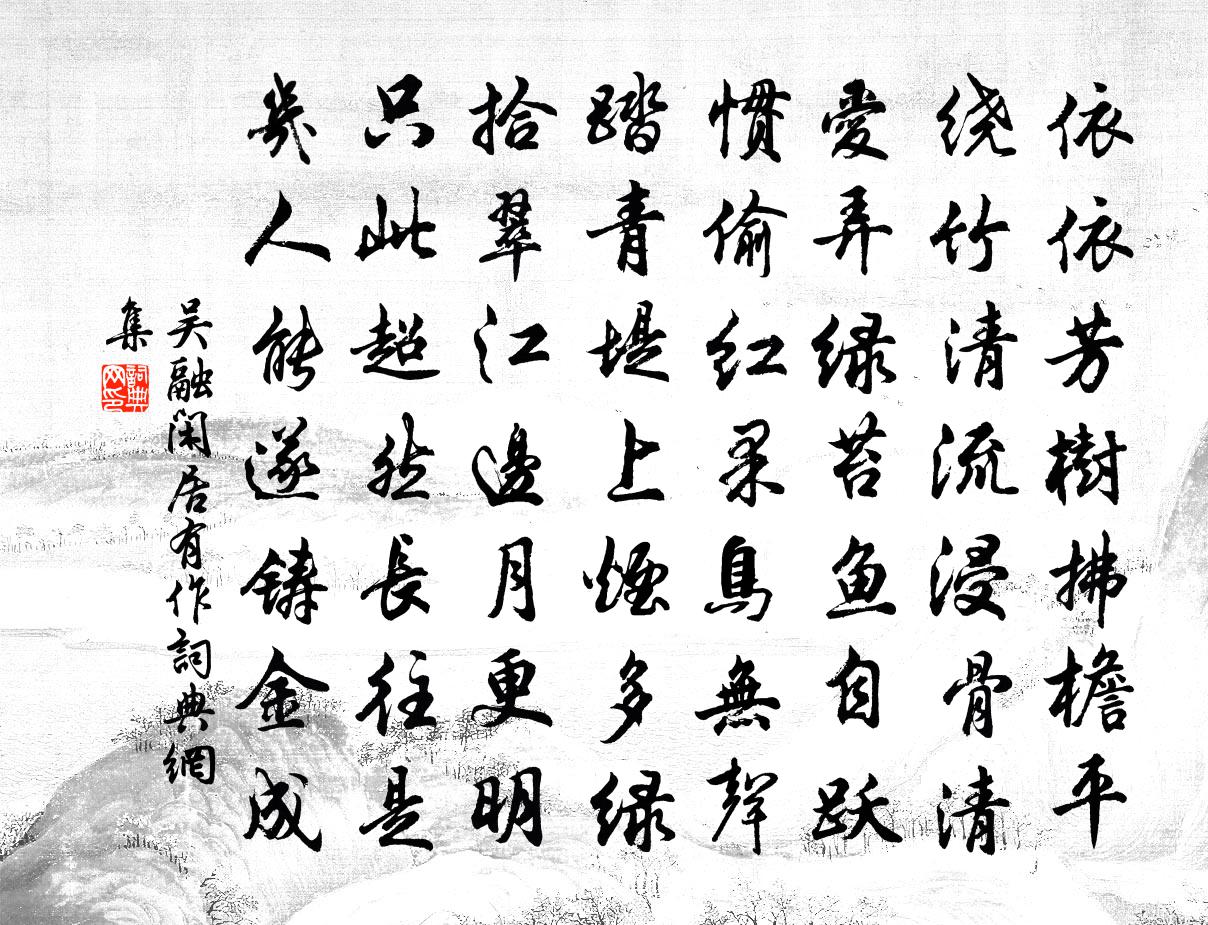 依依芳樹拂檐平
绕竹清流浸骨清
愛弄绿苔鱼自跃
惯偷红果鳥無聲
踏青堤上煙多绿
拾翠江邊月更明
只此超然長往是
幾人能遂鑄金成
吴融闲居有作詞典網
集
詞典网印